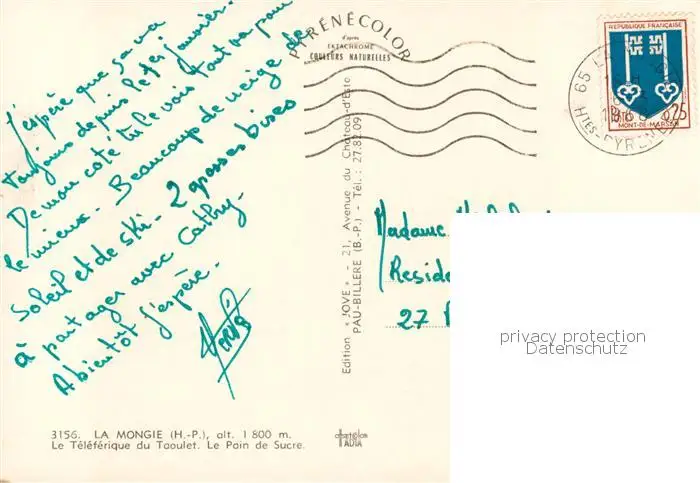 J'espère que sa va
toujours depuis le 1er janvier.
De mon coté tu le vois tout va pour
le mieux. Beaucoup de neige de
Soleil et de ski. 2 grosses bises
à partager avec Cathy.
A bientôt j'espère.
Hervé
3156. LA MONGIE (H.-P.), alt. 1 800 m.
Le Téléférique du Taoulet. Le Pain de Sucre.
PYRÉNÉCOLOR
d'après
EKTACHROME
COULEURS NATURELLES
Edition « JOVE » - 21, Avenue du Château-d'Este
PAU-BILLERE (B.-P.) - Tél. : 27.82.09
REPUBLIQUE FRANÇAISE
0,25
MONT-DE-MARSAN
65
HTES-PYRENEES
Madame
Reside
27
privacy protection
Datenschutz